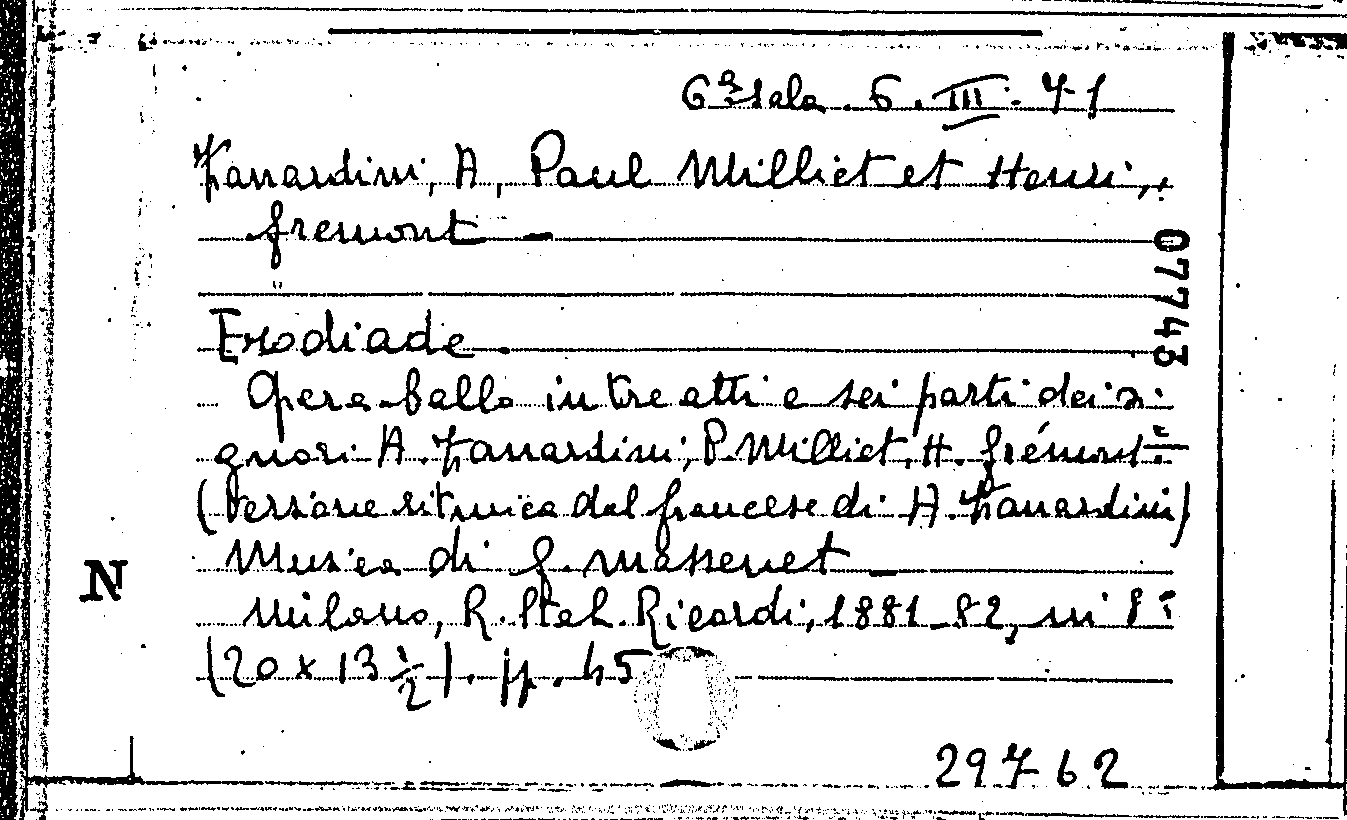 6ª Sala. 6. III. 71
Zanardini, A, Paul Milliet et Henri,
Frémont –
07743
Erodiade.
Opera-ballo in tre atti e sei parti dei si-
gnori A. Zanardini, P. Milliet, H. Frémont =
(Versione ritmica dal francese di A. Zanardini)
Musica di G. Massenet –
N
Milano, R. Stab. Ricordi, 1881-82, in 8º
(20 x 13 ½). pp. 45
29762